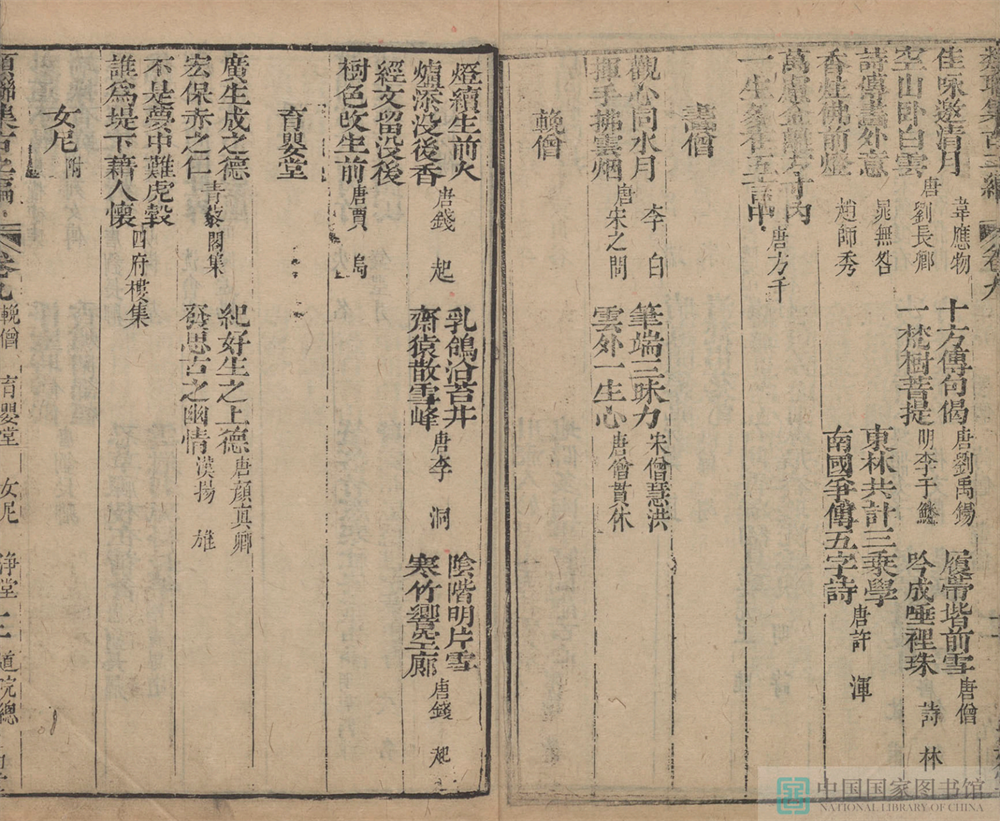 佳咏邀清月 韋應物 十方傳句偈 唐劉禹錫 履帶堦前雪 唐僧
空山卧白雲 唐劉長卿 一梵樹菩提 明李于鱗 吟成唾裡珠 詩林
詩傳畫外意 晁無咎 東林共計三乘學
香灶佛前燈 趙師秀 南國爭傳五字詩 唐許渾
萬慮全離方寸內
一生多在五言中 唐方干
畫僧
觀心同水月 李白 筆端三昧力 宋僧慧洪
揮手拂雲烟 唐宋之問 雲外一生心 唐僧貫休
輓僧
燈續生前火 乳鴿沿苔井 陰階明片雪
爐添沒後香 唐錢起 齋猿散雪峰 唐李洞 寒竹響空廊 唐錢起
經文留沒後
樹色改生前 唐賈島
育嬰堂
廣生成之德 紀好生之上德 唐顏真卿
宏保赤之仁 青藜閣集 發思古之幽情 漢揚雄
不是夢中難虎彀
誰為堤下藉人懷 四府樓集
女尼 附
卷九 輓僧 育嬰堂 女尼 淨堂 道院總
中国国家图书馆
NATIONAL LIBRARY OF CHINA